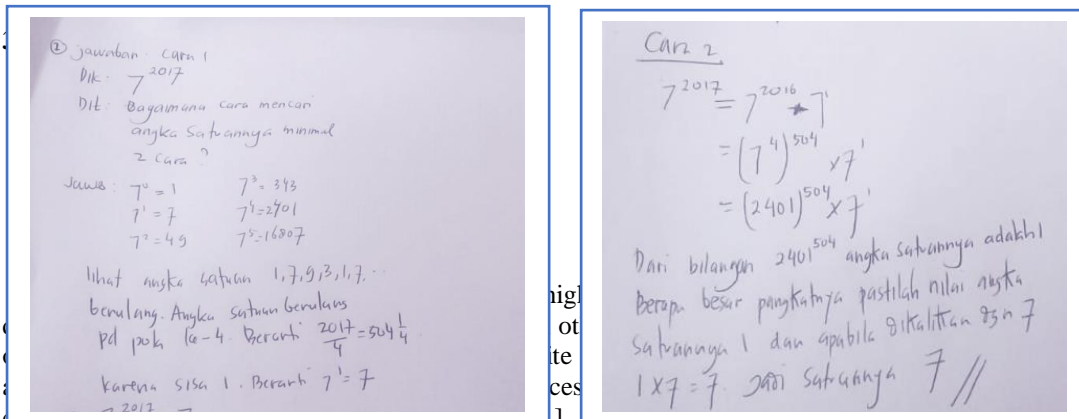 ② jawaban cara 1
Dik: 7^2017
Dit: Bagaimana cara mencari
angka Satuannya minimal
2 Cara ?
Jawab : 7^0 = 1 7^3 = 343
7^1 = 7 7^4 = 2401
7^2 = 49 7^5 = 16807
lihat angka satuan 1,7,9,3,1,7...
berulang. Angka satuan berulang
pd pola ke-4. Berarti 2017/4 = 504 1/4
Karena sisa 1. Berarti 7^1 = 7
Cara 2
7^2017 = 7^2016 * 7^1
= (7^4)^504 x 7^1
= (2401)^504 x 7^1
Dari bilangan 2401^504 angka satuannya adalah 1
Berapa besar pangkatnya pastilah nilai angka
satuannya 1 dan apabila dikalikan dgn 7
1 x 7 = 7. Jadi satuannya 7 //